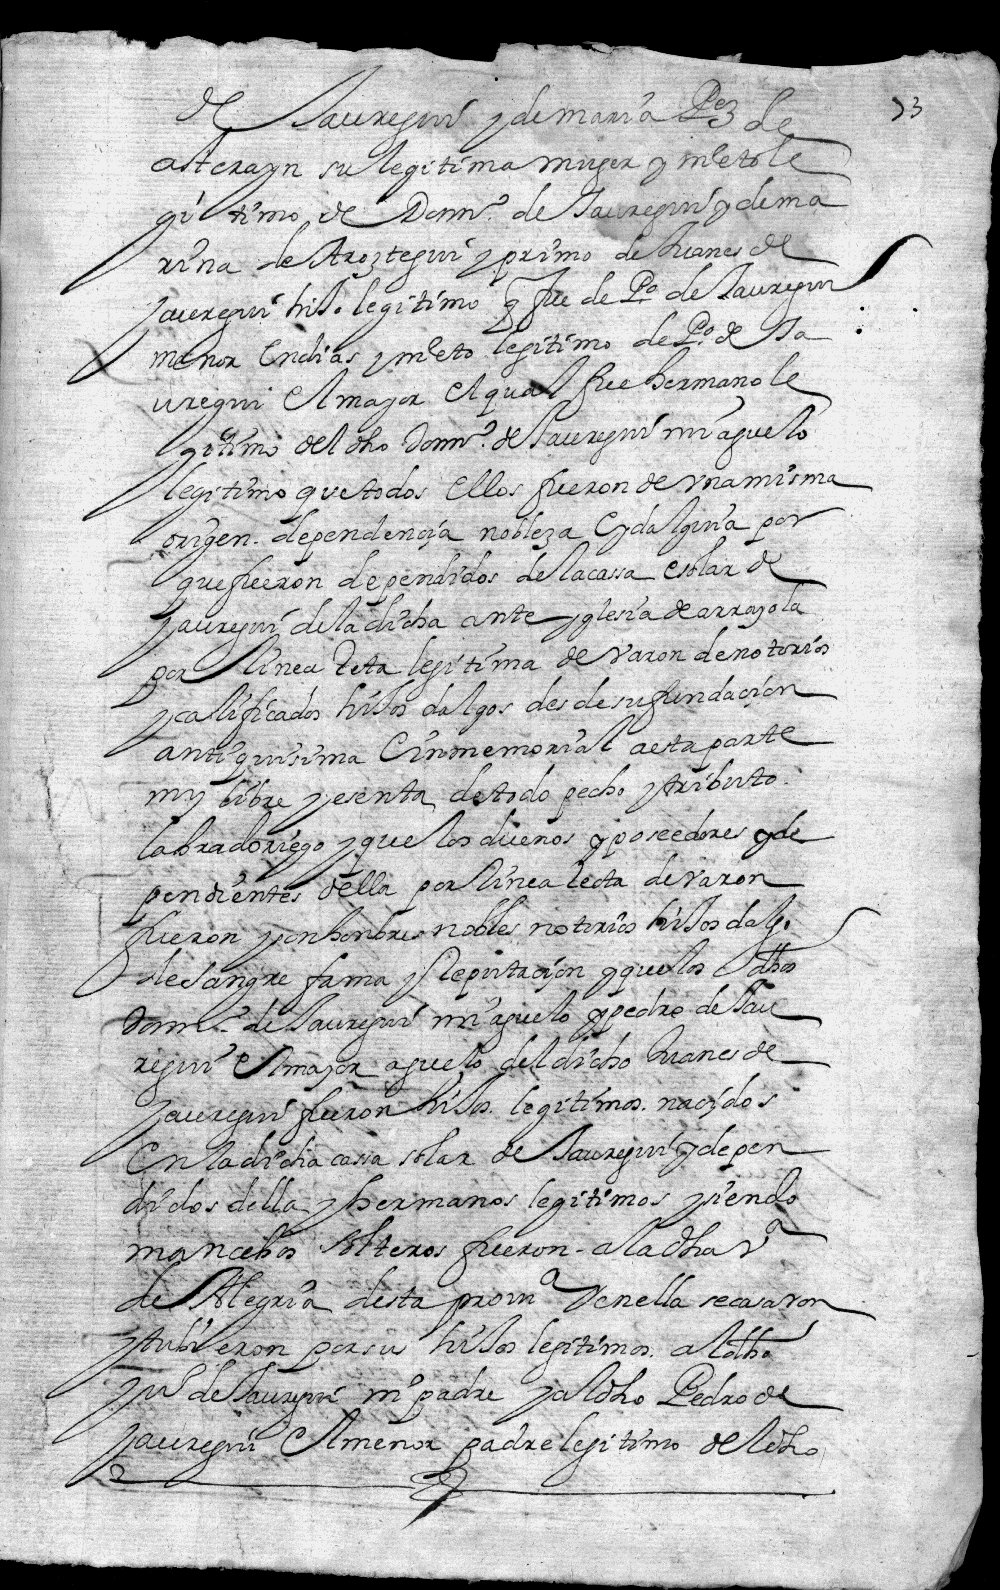 53
de Jauregui y de maria Pez de
asterayn su legitima muger y nieto le
gitimo de Domo. de Jauregui y de ma
rina de Aroztegui y primo de Juanes de
Jauregui hijo legitimo q fue de Po de Jauregui
menor en dias y nieto legitimo de Po de Ja
uregui el mayor el qual fue hermano le
gitimo del dho Domo. de Jauregui mi aguelo
legitimo que todos ellos fueron de vna misma
origen. dependencia nobleza e ydalguia por
que fueron dependidos de la cassa e solar de
Jauregui de la dicha ante yglesia de arrayola
por linea Recta legitima de varon de notorios
y calificados hijos dalgos desde su fundacion
antiquisima e inmemorial a esta parte
muy libre y esenta de todo pecho y tributo
labradoriego y que los duenos y poseedores y de
pendientes della por linea recta de varon
fueron y son honbres nobles notorios hijos dalgo
de sangre fama y Reputacion y que los dhos
Domo. de Jauregui mi aguelo y pedro de Jau
regui el mayor aguelo del dicho Juanes de
Jauregui fueron hijos legitimos. nacidos
En la dicha cassa solar de Jauregui y depen
didos della y hermanos legitimos y siendo
mancebos solteros fueron a la dha va
de Alegria desta proua y en ella se casaron
y tubieron por su hijos legitimos. al dho
Juo de Jauregui mi padre y al dho Pedro de
Jauregui el menor padre legitimo del dho